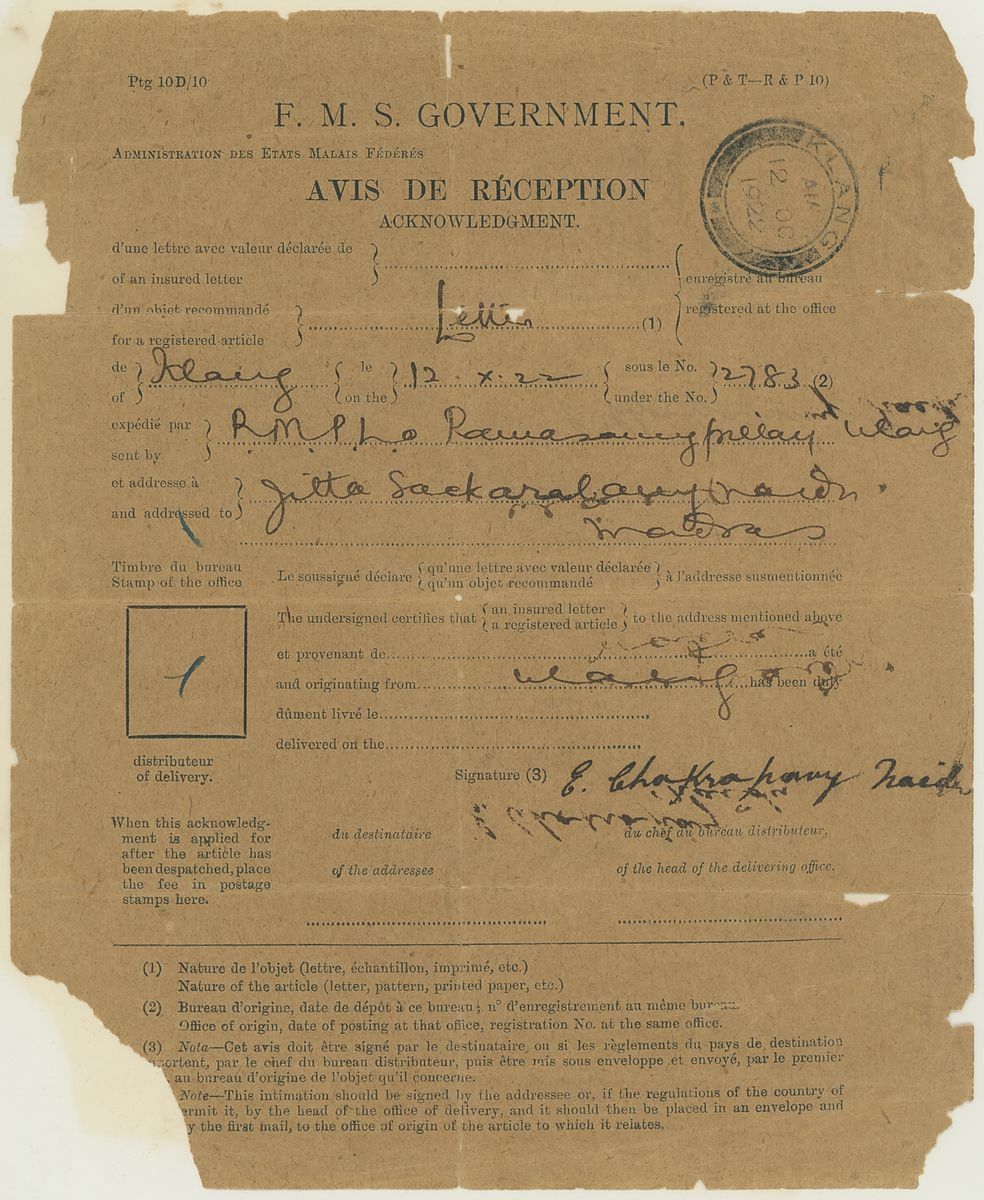 Ptg 10D/10
(P & T—R & P 10)
F. M. S. GOVERNMENT.
ADMINISTRATION DES ETATS MALAIS FÉDÉRÉS
AVIS DE RÉCEPTION
ACKNOWLEDGMENT.
KLANG
AM
12 OC
1922
d'une lettre avec valeur déclarée de
of an insured letter
enregistré au bureau
d'un objet recommandé
Letter (1)
registered at the office
for a registered article
de le sous le No.
Klang 12 . X . 22 2783 (2)
of on the under the No.
expédié par
R.M.P.L. Ramasamypillay Klang
sent by
et addresse à
Naidu
and addressed to
Madras
Timbre du bureau
Stamp of the office
Le soussigné déclare { qu'une lettre avec valeur déclarée } à l'addresse susmentionnée
qu'un objet recommandé
The undersigned certifies that { an insured letter } to the address mentioned above
a registered article
et provenant de a été
and originating from Klang has been duly
dûment livré le
delivered on the
distributeur
of delivery.
Signature (3) E. Chakrapany Naidu
When this acknowledg-
ment is applied for
after the article has
been despatched, place
the fee in postage
stamps here.
du destinataire du chef du bureau distributeur.
of the addressee of the head of the delivering office.
(1) Nature de l'objet (lettre, échantillon, imprimé, etc.)
Nature of the article (letter, pattern, printed paper, etc.)
(2) Bureau d'origine, date de dépôt à ce bureau; n° d'enregistrement au même bureau.
Office of origin, date of posting at that ofiice, registration No. at the same office.
(3) Nota—Cet avis doit être signé par le destinataire ou si les règlements du pays de destination
portent, par le chef du bureau distributeur, puis être mis sous enveloppe et envoyé, par le premier
au bureau d'origine de l'objet qu'il concerne.
Note—This intimation should be signed by the addressee or, if the regulations of the country of
ermit it, by the head of the office of delivery, and it should then be placed in an envelope and
y the first mail, to the office of origin of the article to which it relates.